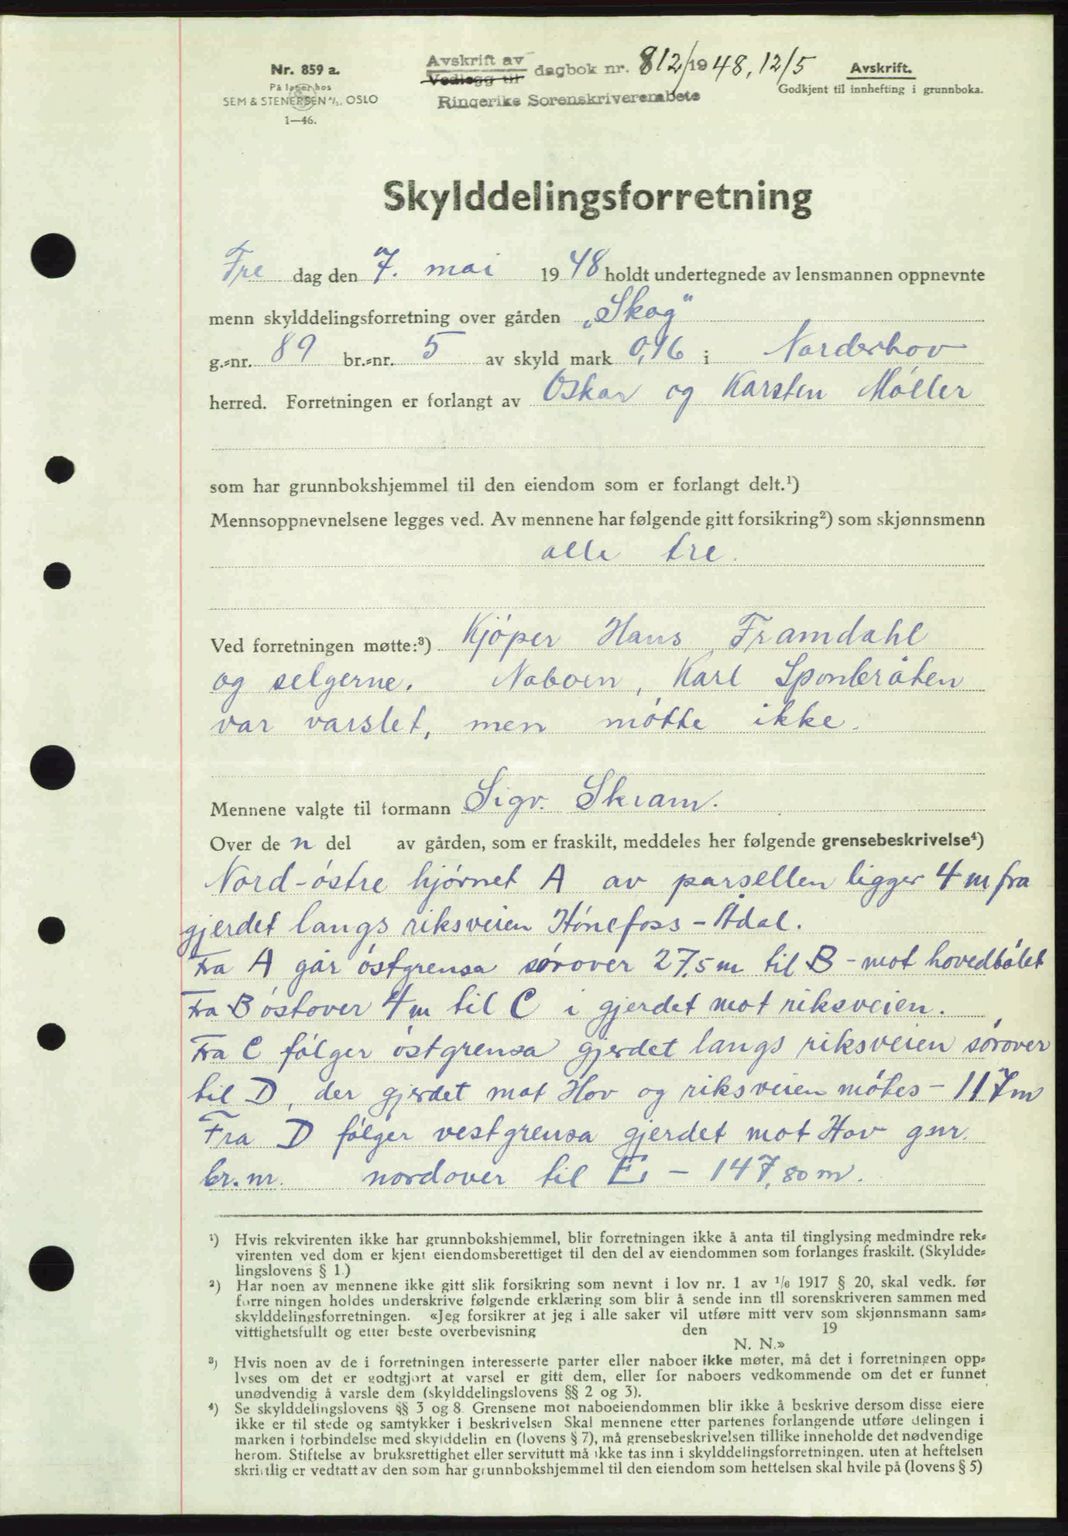 Nr. 859 a.
På lager hos
SEM & STENERSEN A/S. OSLO
1—46.
Avskrift av
Vedlegg til dagbok nr. 812/1948, 12/5
Ringerike Sorenskriverembete
Avskrift.
Godkjent til innhefting i grunnboka.
Skylddelingsforretning
Fre dag den 7. mai 1948 holdt undertegnede av lensmannen oppnevnte
menn skylddelingsforretning over gården „Skog"
g.-nr. 89 br.-nr. 5 av skyld mark 0,16 i Norderhov
herred. Forretningen er forlangt av Oskar og Karsten Møller
som har grunnbokshjemmel til den eiendom som er forlangt delt.¹)
Mennsoppnevnelsene legges ved. Av mennene har følgende gitt forsikring²) som skjønnsmenn
alle tre.
Ved forretningen møtte:³) Kjøper Hans Framdahl
og selgerne. Naboen, Karl Sponbråten
var varslet, men møtte ikke.
Mennene valgte til formann Sigv. Skram.
Over den del av gården, som er fraskilt, meddeles her følgende grensebeskrivelse⁴)
Nord-østre hjørnet A av parsellen ligger 4 m fra
gjerdet langs riksveien Hönefoss - Ådal.
Fra A går östgrensa sørover 27,5 m til B - mot hovedbølet
Fra B östover 4 m til C i gjerdet mot riksveien.
Fra C følger østgrensa gjerdet langs riksveien sørover
til D, der gjerdet mot Hov og riksveien møtes - 117 m
Fra D følger vestgrensa gjerdet mot Hov gnr.
br.nr. nordover til E - 147,80 m.
¹) Hvis rekvirenten ikke har grunnbokshjemmel, blir forretningen ikke å anta til tinglysing medmindre rek-
virenten ved dom er kjent eiendomsberettiget til den del av eiendommen som forlanges fraskilt. (Skyldde-
lingslovens § 1.)
²) Har noen av mennene ikke gitt slik forsikring som nevnt i lov nr. 1 av 1/6 1917 § 20, skal vedk. før
forretningen holdes underskrive følgende erklæring som blir å sende inn til sorenskriveren sammen med
skylddelingsforretningen. «Jeg forsikrer at jeg i alle saker vil utføre mitt verv som skjønnsmann sam-
vittighetsfullt og etter beste overbevisning den 19
N. N.»
³) Hvis noen av de i forretningen interesserte parter eller naboer ikke møter, må det i forretningen opp-
lyses om det er godtgjort at varsel er gitt dem, eller for naboers vedkommende om det er funnet
unødvendig å varsle dem (skylddelingslovens §§ 2 og 3).
⁴) Se skylddelingslovens §§ 3 og 8. Grensene mot naboeiendommen blir ikke å beskrive dersom disse eiere
ikke er til stede og samtykker i beskrivelsen Skal mennene etter partenes forlangende utføre delingen i
marken i forbindelse med skylddelin en (lovens § 7), må grensebeskrivelsen tillike inneholde det nødvendige
herom. Stiftelse av bruksrettighet eller servitutt må ikke tas inn i skylddelingsforretningen, uten at heftelsen
skriftlig er vedtatt av den som har grunnbokshjemmel til den eiendom som heftelsen skal hvile på (lovens § 5)